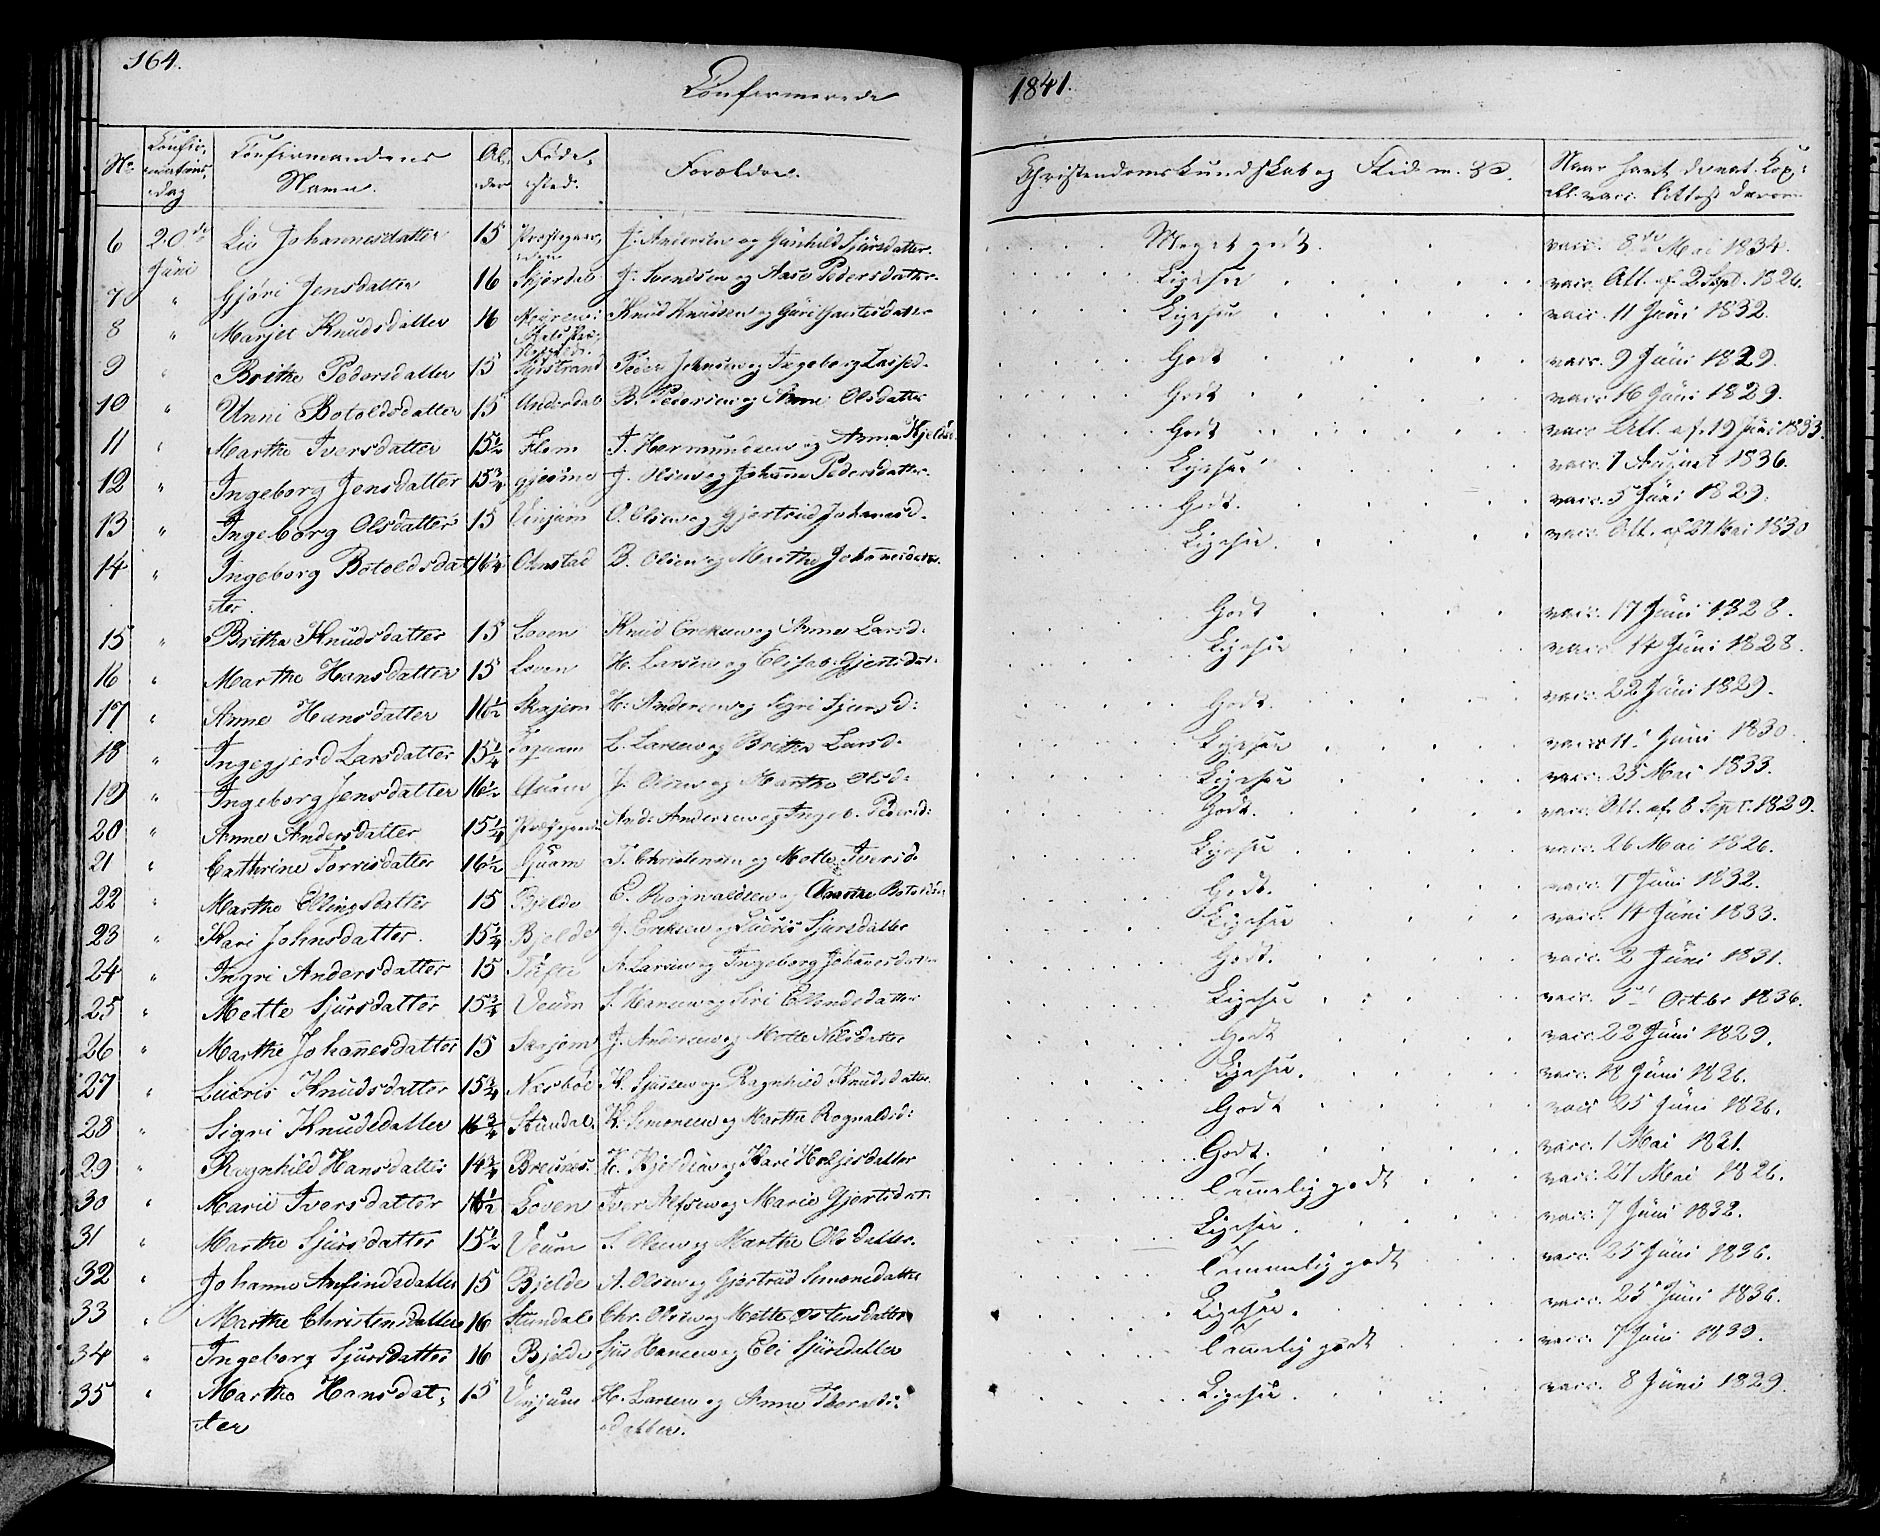 164.
Confirmerede
1841.
No Confir-mations-dag Confirmandens Navn. Al-der Føde-sted. Forældre. Christendomskundskab og Flid m. 3 Naar havt de nat. Kop: ell. vacc. Attest derom
6 20de Juni Johannesdatter 15 Præstegaar-den J: Andersen og Gunhild Sjursdatter. Meget godt. vacc. 8de Mai 1834.
7 " Gjøri Jensdatter 16 Skjerdal J: Svendsen og Aase Pedersdatter. Ligesaa vacc. Att. af 2 Sept. 1826.
8 " Marjet Knudsdatter 16 Knud Knudsen og Guri Ligesaa vacc. 11 Juni 1832.
9 " Brithe Pedersdatter 15 Peder Johnsen og Ingeborg Lassed. Godt vacc. 9 Juni 1829.
10 " Unni Botoldsdatter 15 Underdal B. Pedersen og Anne Olsdatter Godt vacc. 16 Juni 1829.
11 " Marthe Iversdatter 15½ Flom I. Hermundsen og Anna Godt vacc. Att. af. 19 Juni 1833.
12 " Ingeborg Jensdatter 15¾ J. Olsen og Johanne Pedersdatter. Ligesaa vacc. 7 August 1836.
13 " Ingeborg Olsdatter 15 Vinjum O. Olsen og Gjertrud Johannesd. Godt. vacc. 5 Juni 1829.
14 " Ingeborg Botoldsdat-ter. 16¼ Otternstad B. Olsen og Marthe Johannesdatter. Ligesaa. vacc. Att. af 27 Mai 1830
15 " Britha Knudsdatter 15 Loven Knud Eriksen og Anna Larsd: Godt vacc. 17 Juni 1828.
16 " Marthe Hansdatter 15 Loven H. Larsen og Elisab. Gjertsdat: Ligesaa vacc. 14 Juni 1828.
17 " Anne Hansdatter 16½ Skajem H: Andersen og Sigri Sjursd: Godt. vacc. 22 Juni 1829.
18 " Ingegjerd Larsdatter 15¼ L. Larsen og Britha Larsd. Ligesaa vacc. 11. Juni 1830.
19 " Ingeborg Jensdatter 16½ Quam J. Olsen og Martha Olsd: Ligesaa vacc. 25 Mai 1833.
20 " Anne Andersdatter 15¼ And: Andersen og Ingeb. Pedersd: Godt. vacc. Att. af. 8 Sept. 1829.
21 " Cathrine Torrisdatter 16½ Quam T. Christensen og Mette Iversd. Ligesaa vacc. 26 Mai 1826.
22 " Marthe Ellingsdatter 15 Bjelde E. Rognvaldsen og Marthe Botoldsd Godt. vacc. 7 Juni 1832.
23 " Kari Johnsdatter. 15¼ Bjelde J. Eriksen og Lucris Sjursdatter Ligesaa vacc. 14 Juni 1833.
24 " Ingri Andersdatter 15 Tufte A. Larsen og Ingeborg Johannesdatter Godt. vacc. 2 Juni 1831.
25 " Mette Sjursdatter 15¾ Veum S. Hansen og Siri Ellendsdatter Ligesaa vacc. Octbr 1836.
26 " Marthe Johannesdatter 15 Skajem J. Andersen og Mette Nilsdatter Godt vacc. 22 Juni 1829.
27 " Lucris Knudsdatter 15¾ Næsbøe K. Sjursen og Ragnhild Knudsdatter Ligesaa. vacc. 18 Juni 1826.
28 " Sigri Knudsdatter 16¾ Stundal. K. Simonsen og Martha Rognaldsd: Godt vacc. 25 Juni 1826.
29 " Ragnhild Hansdatter 14¾ Breunes. H. Kjeldsen og Kari Holjesdatter Godt. vacc. 1 Mai 1821.
30 " Marie Iversdatter 16½ Loven Iver Alfsen og Marie Gjertsdat: Temmelig godt vacc. 27 Mai 1826.
31 " Marthe Sjursdatter 15½ Veum S. Olsen og Marthe Olsdatter. Ligesaa. vacc. 7 Juni 1832.
32 " Johanne Anfindsdatter 15 Bjelde A. Olsen og Gjertrud Simonsdatter Temmelig godt vacc. 25 Juni 1836.
33 " Marthe Christensdatter 16 Stundal Chr. Olsen og Mette Ostensdatter Ligesaa. vacc. 25 Juni 1836.
34 " Ingeborg Sjursdatter 16 Bjelde Sjur Hansen og Eli Sjursdatter Temmelig godt vacc. 7 Juni 1839.
35 " Martha Hansdat-ter 15 Vinjum H. Larsen og Anne datter. Ligesaa. vacc. 8 Juni 1829.